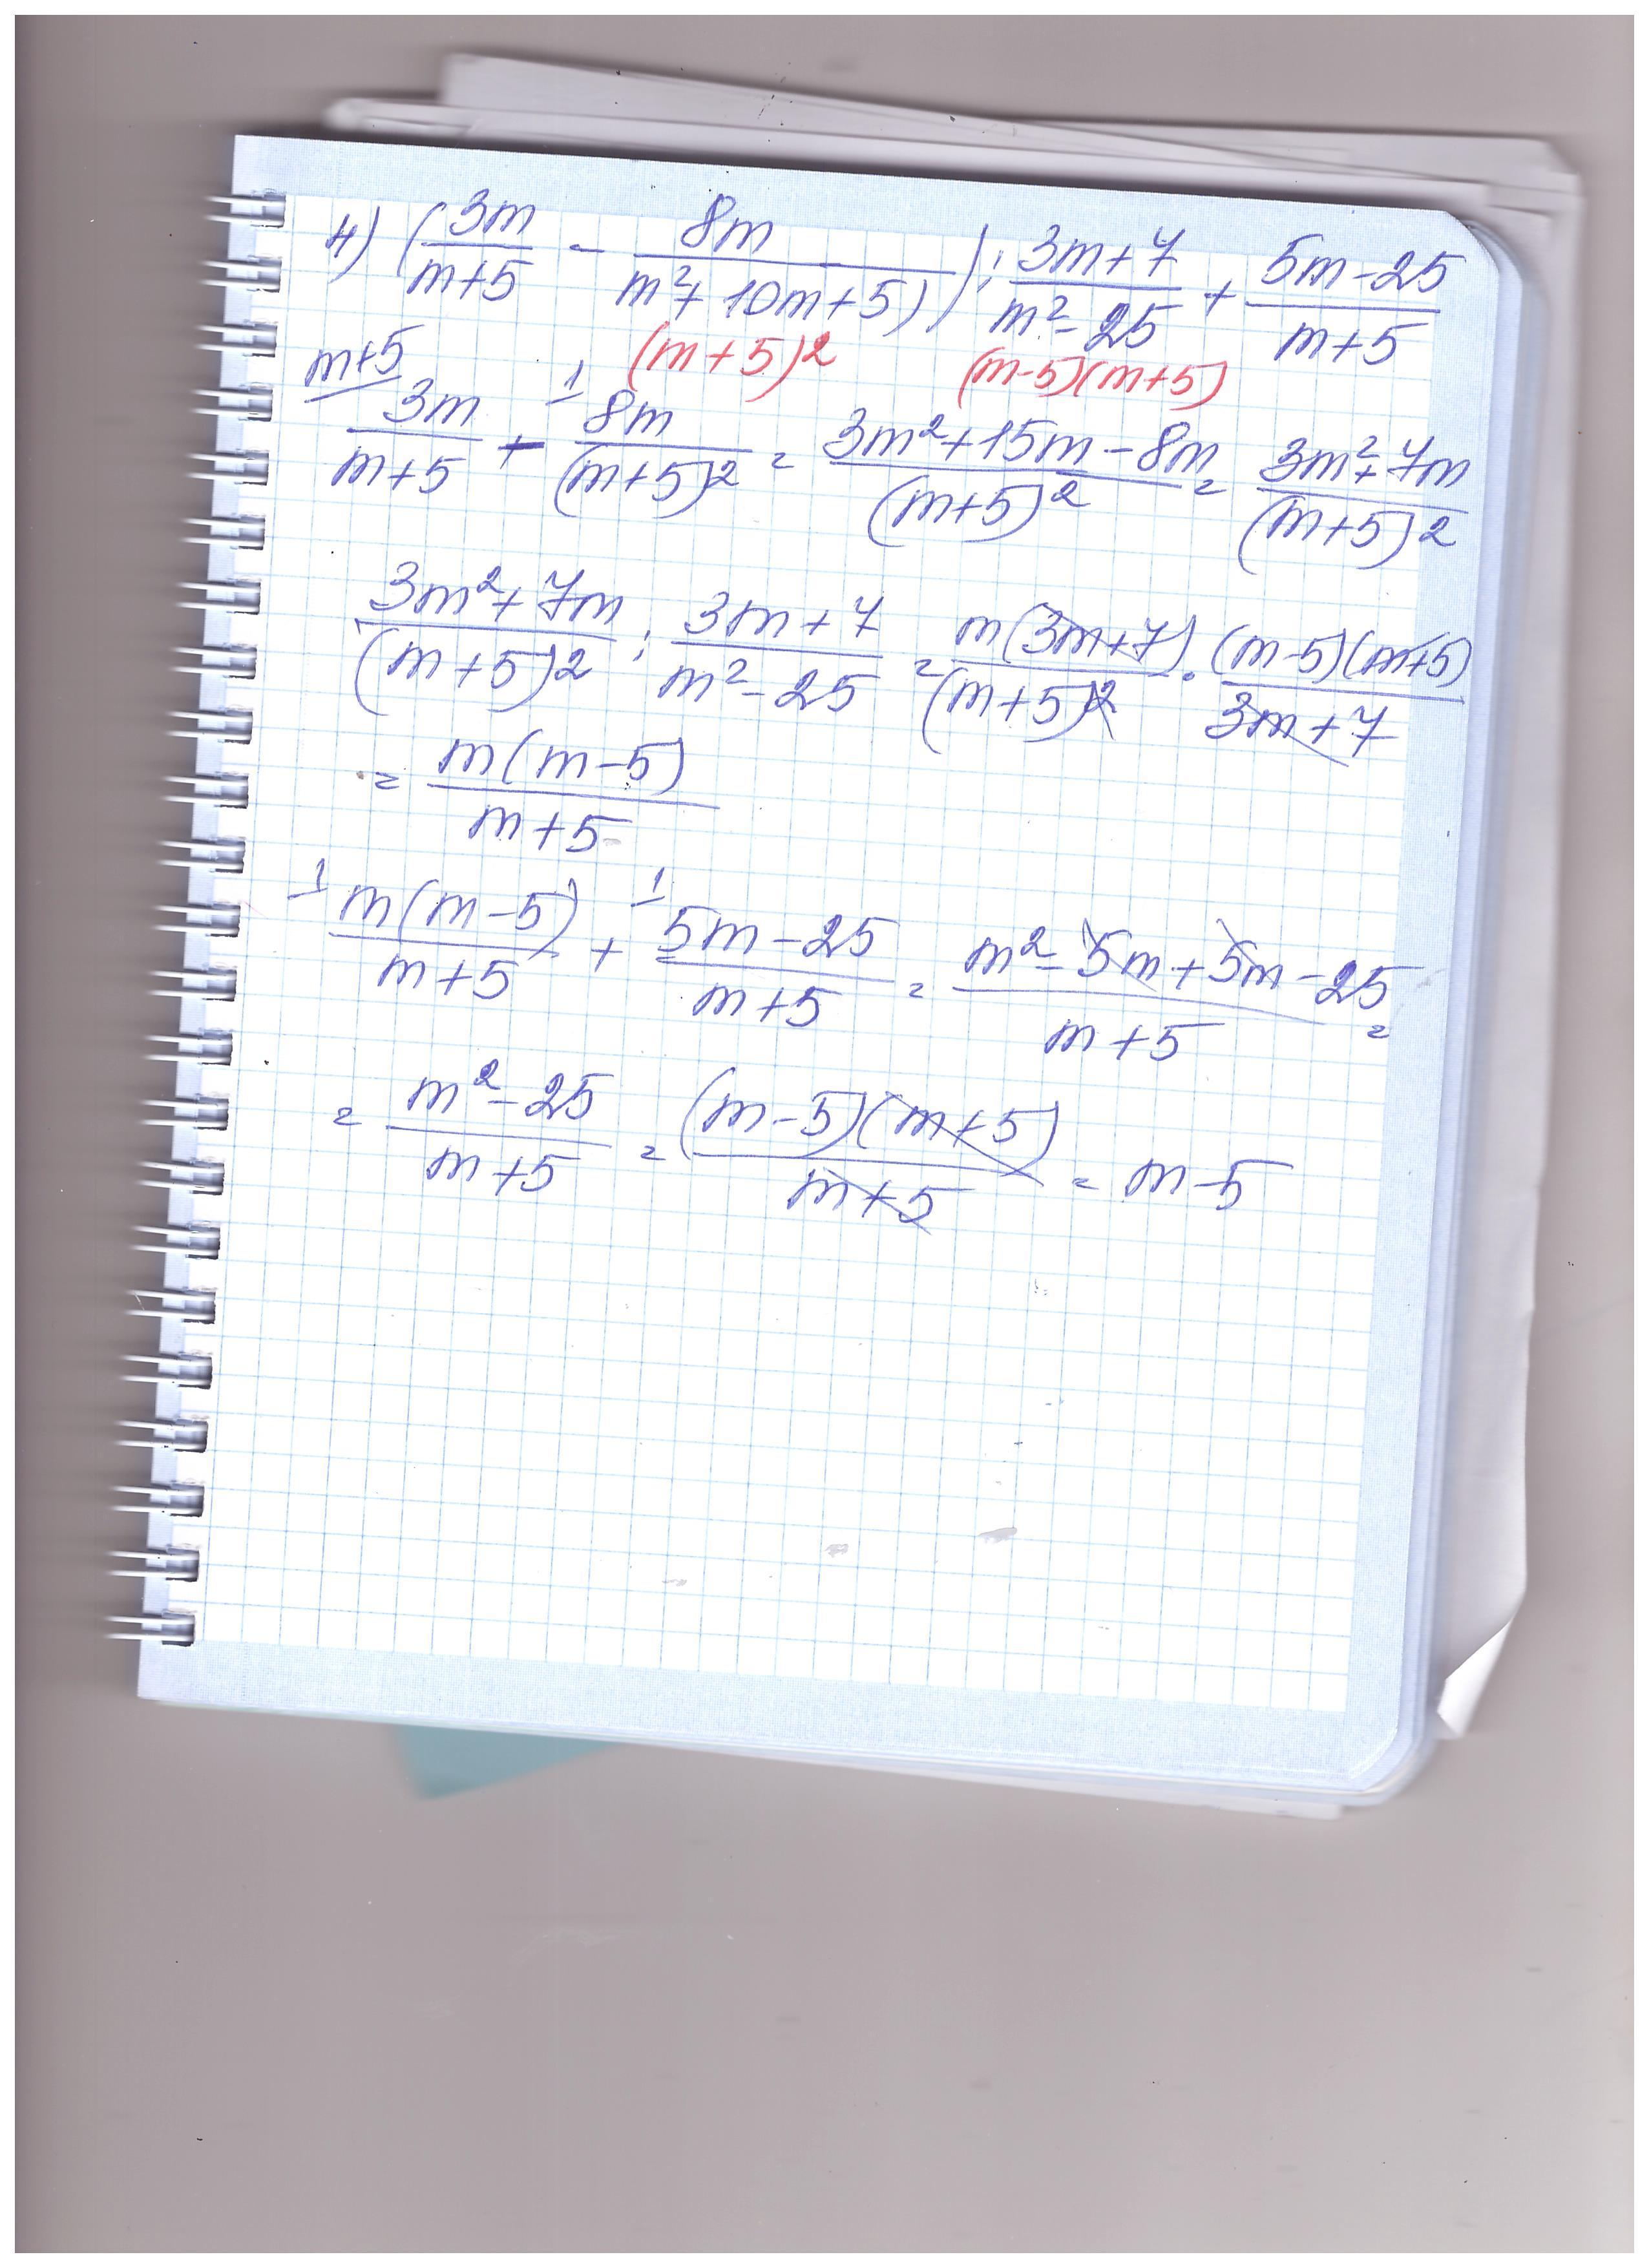 4) (3m/(m+5) - 8m/(m²+10m+5)) : (3m+7)/(m²-25) + (5m-25)/(m+5)
(m+5)² (m-5)(m+5)
m+5 3m/(m+5) - 1 8m/(m+5)² = (3m²+15m-8m)/(m+5)² = (3m²+7m)/(m+5)²
(3m²+7m)/(m+5)² : (3m+7)/(m²-25) = m(3m+7)/(m+5)² · (m-5)(m+5)/(3m+7)
= m(m-5)/(m+5)
1 m(m-5)/(m+5) + 1 (5m-25)/(m+5) = (m²-5m+5m-25)/(m+5) =
= (m²-25)/(m+5) = (m-5)(m+5)/(m+5) = m-5